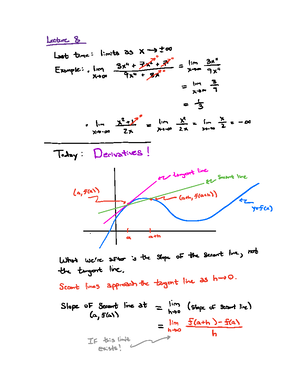 Lecture 8
Last time: limits as x → ±∞
Example: • lim x→∞ (3x⁴ + 7x² + 7) / (9x⁴ + 8x²) = lim x→∞ 3x⁴ / 9x⁴
= lim x→∞ 3/9
= 1/3
• lim x→-∞ (x² + 1) / 2x = lim x→-∞ x² / 2x = lim x→-∞ x/2 = -∞
Today: Derivatives!
tangent line
Secant line
(a, f(a))
(a+h, f(a+h))
y=f(x)
a
a+h
What we're after is the slope of the secant line, not
the tangent line.
Secant lines approach the tangent line as h→0.
Slope of secant line at (a, f(a)) = lim h→0 (slope of secant line)
= lim h→0 (f(a+h) - f(a)) / h
IF this limit
exists!